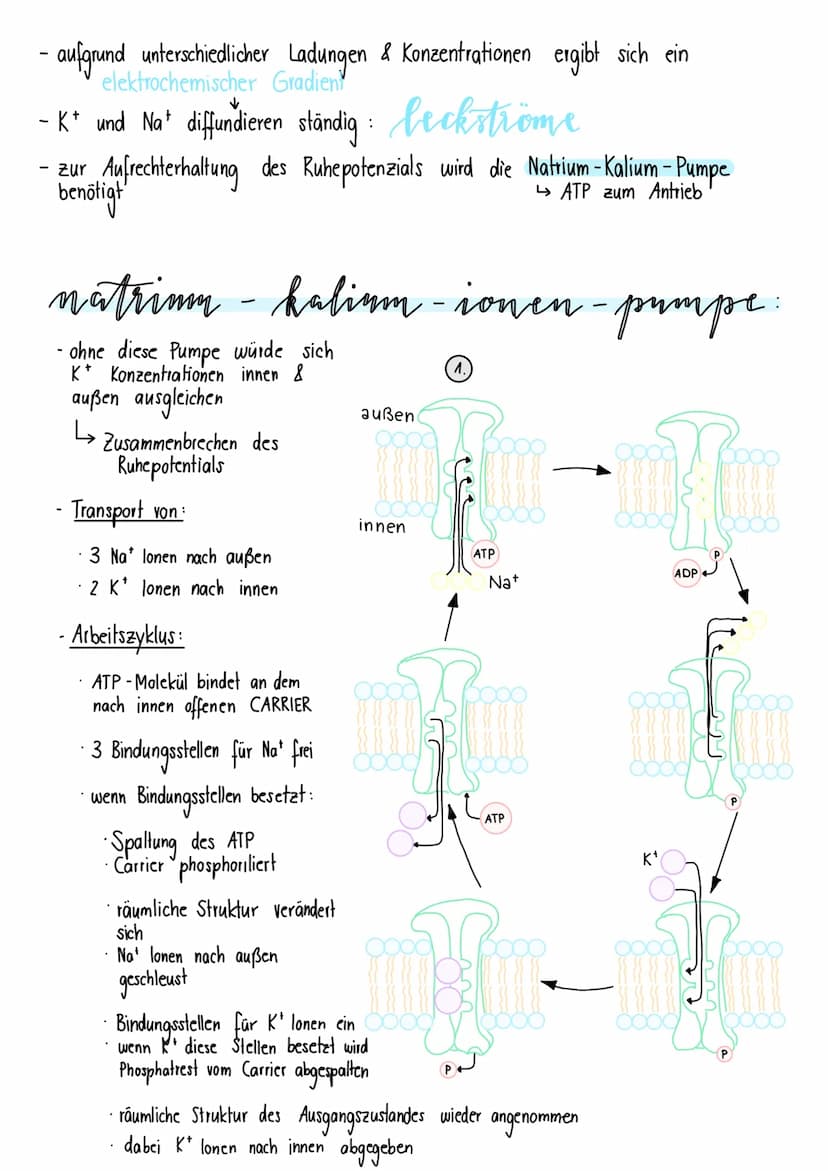 - aufgrund unterschiedlicher Ladungen & Konzentrationen ergibt sich ein
elektrochemischer Gradient
↓
- K⁺ und Na⁺ diffundieren ständig : leckströme
- zur Aufrechterhaltung des Ruhepotenzials wird die Natrium-Kalium-Pumpe
benötigt
↳ ATP zum Antrieb
natrium - kalium - ionen - pumpe :
- ohne diese Pumpe würde sich
K⁺ Konzentrationen innen &
außen ausgleichen
↳ Zusammenbrechen des
Ruhepotentials
- Transport von:
· 3 Na⁺ Ionen nach außen
· 2 K⁺ Ionen nach innen
- Arbeitszyklus:
· ATP-Molekül bindet an dem
nach innen offenen CARRIER
· 3 Bindungsstellen für Na⁺ frei
· wenn Bindungsstellen besetzt:
· Spaltung des ATP
· Carrier phosphoriliert
· räumliche Struktur verändert
sich
· Na⁺ Ionen nach außen
geschleust
· Bindungsstellen für K⁺ Ionen ein
· wenn K⁺ diese Stellen besetzt wird
Phosphatrest vom Carrier abgespalten
· räumliche Struktur des Ausgangszustandes wieder angenommen
· dabei K⁺ Ionen nach innen abgegeben
1.
außen
innen
ATP
Na⁺
P
ADP
P
K⁺
P
P
ATP